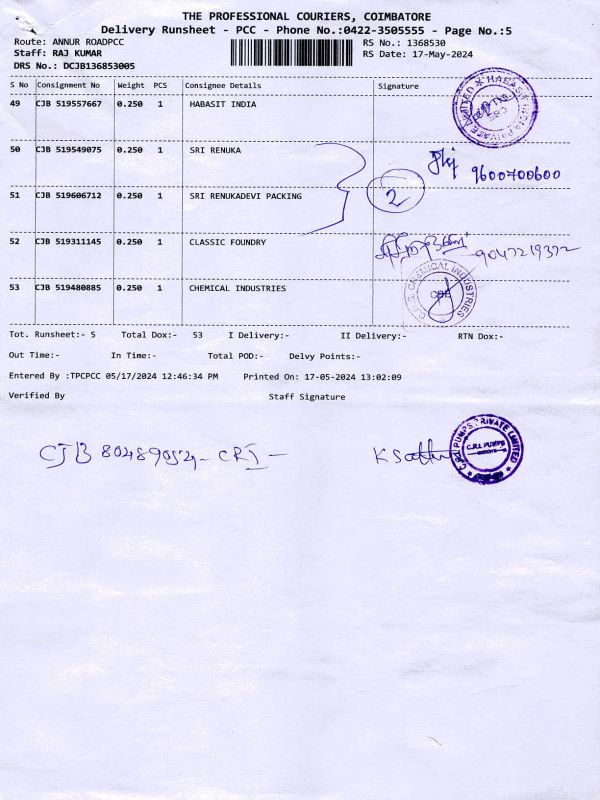 THE PROFESSIONAL COURIERS, COIMBATORE
Delivery Runsheet - PCC - Phone No.:0422-3505555 - Page No.:5
Route: ANNUR ROADPCC RS No.: 1368530
Staff: RAJ KUMAR RS Date: 17-May-2024
DRS No.: DCJB136853005
S No Consignment No Weight PCS Consignee Details Signature
49 CJB 519557667 0.250 1 HABASIT INDIA
50 CJB 519549075 0.250 1 SRI RENUKA
9600700600
51 CJB 519606712 0.250 1 SRI RENUKADEVI PACKING 2
52 CJB 519311145 0.250 1 CLASSIC FOUNDRY
53 CJB 519480885 0.250 1 CHEMICAL INDUSTRIES
CHEMICAL INDUSTRIES
Tot. Runsheet:- 5 Total Dox:- 53 I Delivery:- II Delivery:- RTN Dox:-
Out Time:- In Time:- Total POD:- Delvy Points:-
Entered By :TPCPCC 05/17/2024 12:46:34 PM Printed On: 17-05-2024 13:02:09
Verified By Staff Signature
C.R.I. PUMPS PRIVATE LIMITED
C.R.I. PUMPS
CJB CRI -